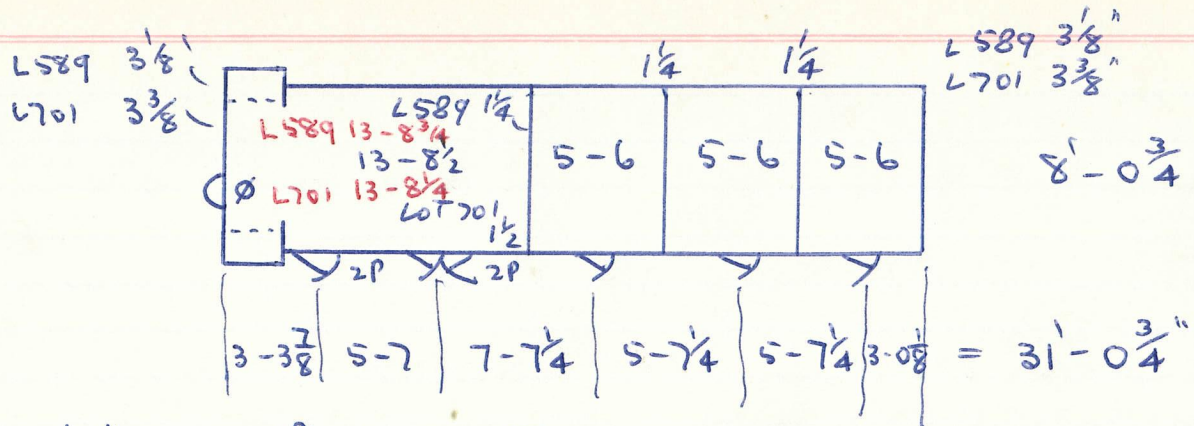 L589 3 1/8"
L701 3 3/8
1 1/4
1 1/4
L589 3 1/8"
L701 3 3/8"
L589 1 1/4
L589 13-8 3/4
13-8 1/2
L701 13-8 1/4
LOT 701
1 1/2
Ø
5-6
5-6
5-6
8'-0 3/4
2P
2P
3-3 7/8
5-7
7-7 1/4
5-7 1/4
5-7 1/4
3-0 1/8
= 31'-0 3/4"